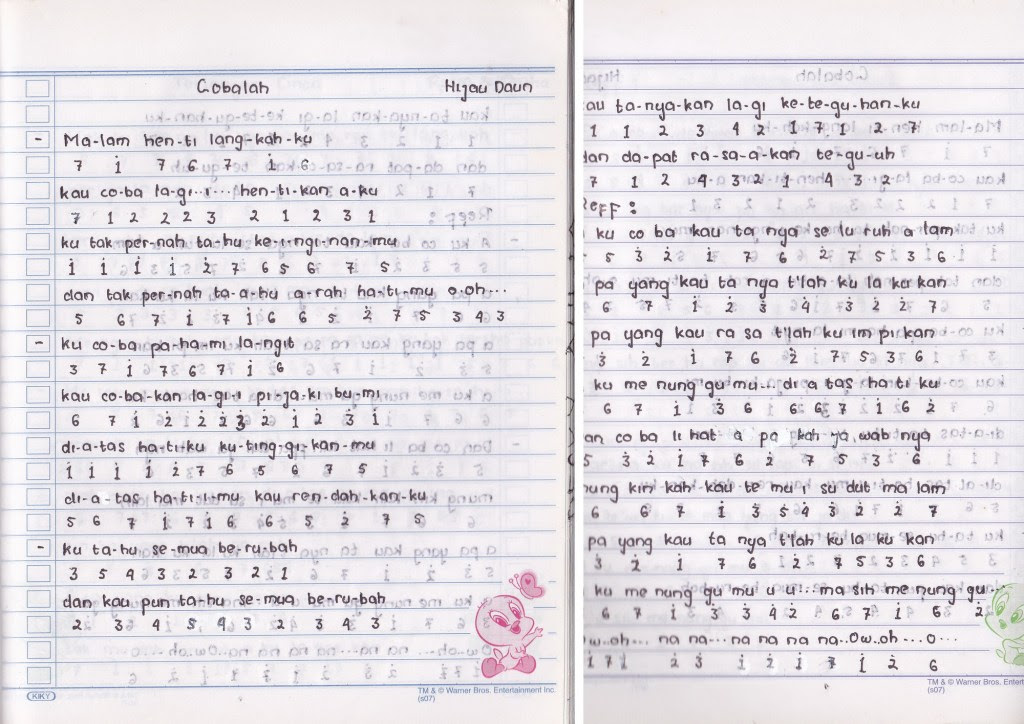 Cobalah Hijau Daun
- Ma-lam hen-ti lang-kah-ku
7 i 7 6 7 i 6
kau co-ba la-gi..i... hen-ti-kan a-ku
7 1 2 2 2 3 2 1 2 3 1
ku tak per-nah ta-hu ke-i-ngi-nan-mu
i i i i 2̇ 7 6 5 6 7 5
dan tak per-nah ta-a-hu a-rah ha-ti-mu o.oh...
5 6 7 i 7 i 6 6 5 2̇ 7 5 3 4 3
- ku co-ba pa-ha-mi la-ngit
3 7 i 7 6 7 i 6
kau co-ba-kan la-gi-i pi-ja-ki bu-mi
6 7 i 2̇ i 2̇ 2̇ 3̇ 2̇ i 2̇ 3̇ i
di-a-tas ha-ti-ku ku-ting-gi-kan-mu
i i i i 2̇ 7 6 5 6 7 5
di-a-tas ha-ti-i-mu kau ren-dah-kan-ku
5 6 7 i 7 i 6 6 5 2̇ 7 5
- ku ta-hu se-mua be-ru-bah
3 5 4 3 3 2 3 2 1
dan kau pun ta-hu se-mua be-ru-bah
2 3 4 5 4 3 2 3 4 3
KIKY
TM & © Warner Bros. Entertainment Inc.
(s07)
au ta-nya-kan la-gi ke-te-gu-han-ku
1 1 2 3 4 2 1 7 1 2 7
dan da-pat ra-sa-a-kan te-gu-uh
7 1 2 4 3 2 1 4 3 2
Reff :
ku co ba kau ta nya se lu ruh a lam
5 3̇ 2̇ i 7 6 2̇ 7 5 3 6
pa yang kau ta nya t'lah ku la ku kan
6 7 i 2̇ 3̇ 4̇ 3̇ 2̇ 2̇ 7
pa yang kau ra sa t'lah ku im pi kan
3̇ 2̇ i 7 6 2̇ 7 5 3 6
ku me nung gu mu... di a tas ha ti ku
6 7 i 3̇ 6 i 6 6 7 i 6 2̇
an co ba li hat a pa kah ja wab nya
5 3̇ 2̇ i 7 6 2̇ 7 5 3 6
nung kin kah kau te mu i su dut ma lam
6 6 7 i 3̇ 5̇ 4̇ 3̇ 2̇ 2̇ 7
pa yang kau ta nya t'lah ku la ku kan
3̇ 2̇ i 7 6 2̇ 7 5 3 6
ku me nung gu mu u u... ma sih me nung gu
6 7 i 3̇ 3̇ 4̇ 2̇ 6 7 i 6 2̇
ow..oh... na na... na na na na..Ow..oh...o...
1 7 i 2̇ 3̇ i 2̇ i 7 i 2̇ 6
TM & © Warner Bros. Entert
(s07)